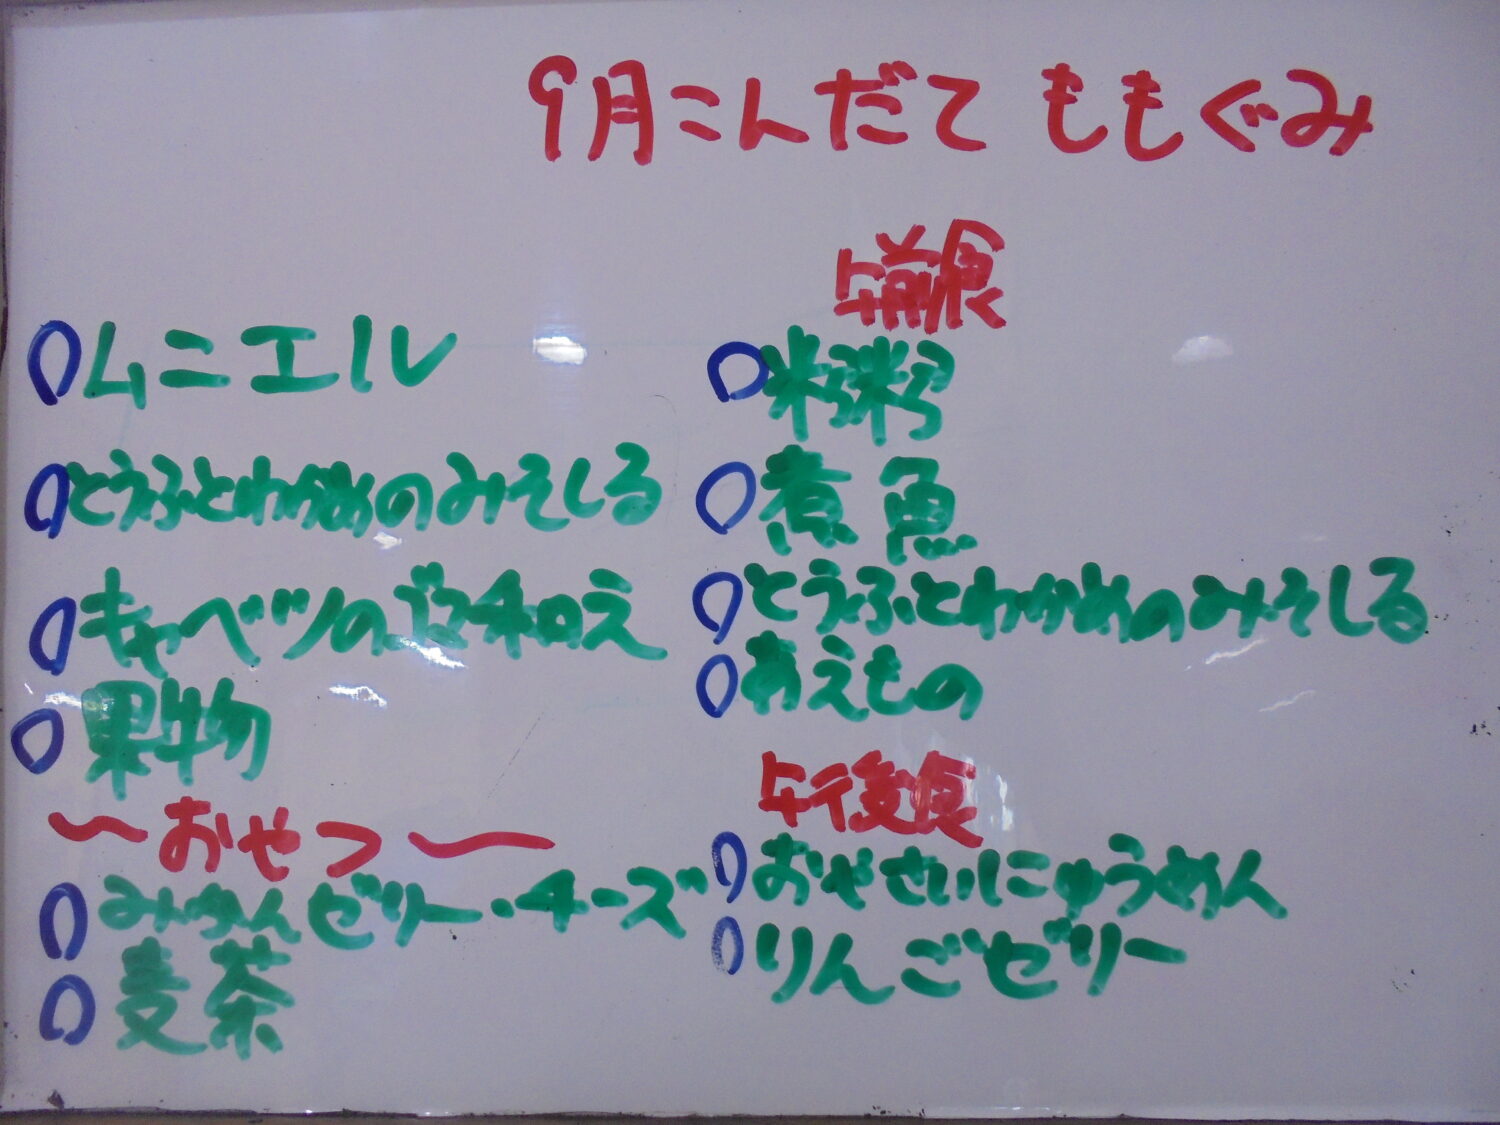 9月こんだて ももぐみ
○ムニエル
○とうふとわかめのみそしる
○キャベツのゴマ和え
○果物
〜おやつ〜
○みかんゼリー・チーズ
○麦茶
午前食
○米粥
○煮魚
○とうふとわかめのみそしる
○あえもの
午後食
○おやさいにゅうめん
○りんごゼリー